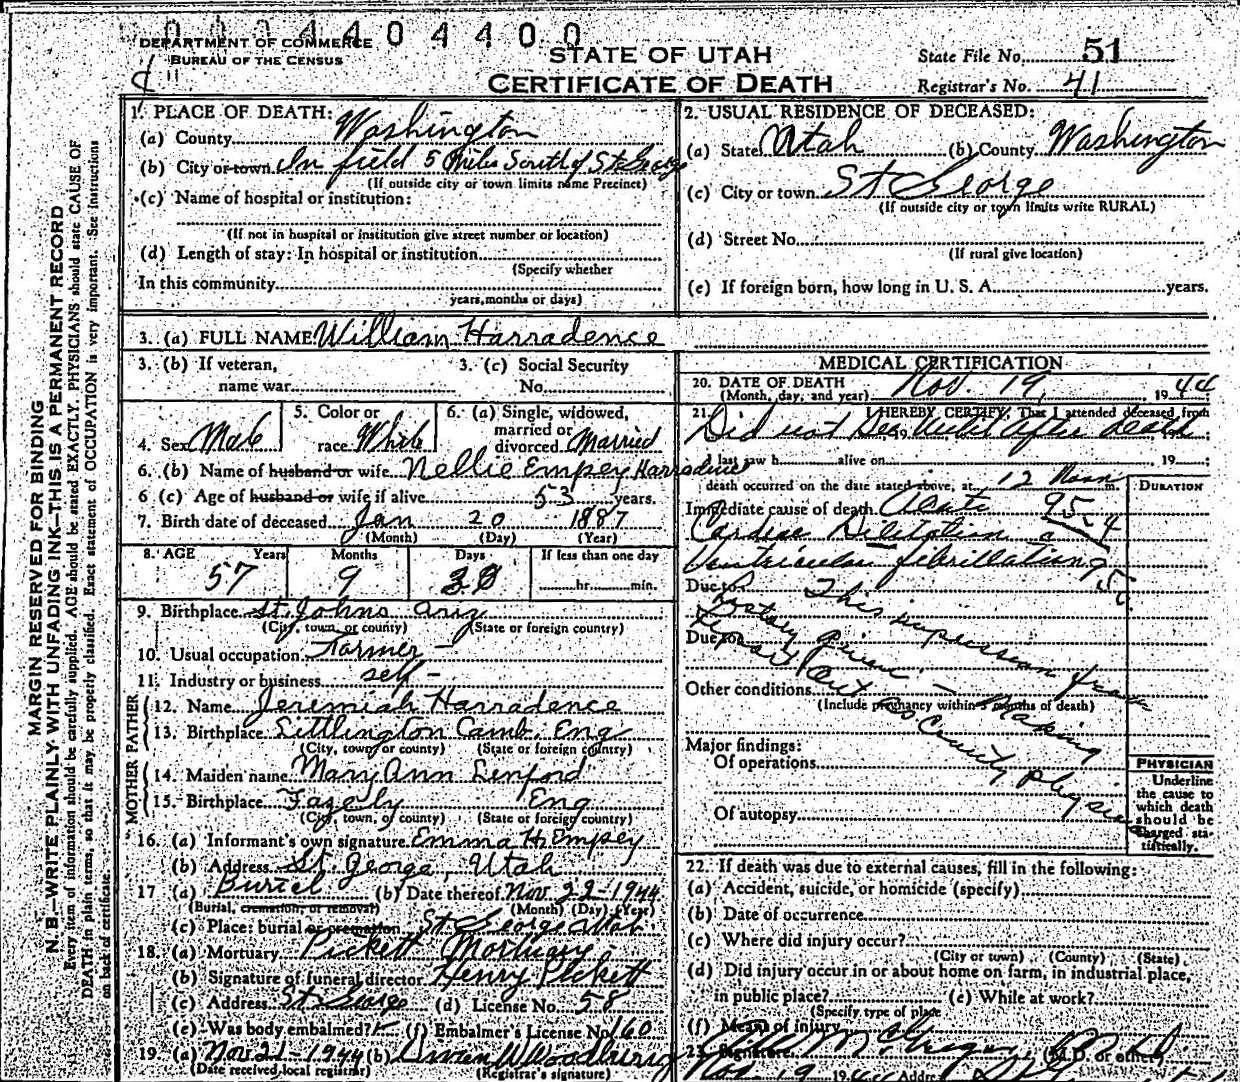 0034404400
DEPARTMENT OF COMMERCE
BUREAU OF THE CENSUS
STATE OF UTAH
CERTIFICATE OF DEATH
State File No. 51
Registrar's No. 41
MARGIN RESERVED FOR BINDING
N. B.—WRITE PLAINLY WITH UNFADING INK—THIS IS A PERMANENT RECORD
Every item of information should be carefully supplied. AGE should be stated EXACTLY. PHYSICIANS should state CAUSE OF
DEATH in plain terms, so that it may be properly classified. Exact statement of OCCUPATION is very important. See instructions
on back of certificate.
1. PLACE OF DEATH:
(a) County Washington
(b) City or town In field 5 Miles South of St George
(If outside city or town limits name Precinct)
(c) Name of hospital or institution:
(If not in hospital or institution give street number or location)
(d) Length of stay: In hospital or institution
(Specify whether
In this community
years, months or days)
2. USUAL RESIDENCE OF DECEASED:
(a) State Utah (b) County Washington
(c) City or town St George
(If outside city or town limits write RURAL)
(d) Street No.
(If rural give location)
(e) If foreign born, how long in U. S. A. years.
3. (a) FULL NAME William Harradence
3. (b) If veteran,
name war
3. (c) Social Security
No.
4. Sex Male
5. Color or
race White
6. (a) Single, widowed,
married or
divorced Married
6. (b) Name of husband or wife Nellie Empey Harradence
6 (c) Age of husband or wife if alive 53 years.
7. Birth date of deceased Jan 20 1887
(Month) (Day) (Year)
8. AGE Years Months Days If less than one day
57 9 hr. min.
9. Birthplace St. Johns Ariz
(City, town or county) (State or foreign country)
10. Usual occupation Farmer -
11. Industry or business self -
FATHER
12. Name Jeremiah Harradence
13. Birthplace Littlington Camb. Eng
(City, town or county) (State or foreign country)
MOTHER
14. Maiden name Mary Ann Linford
15. Birthplace Fazely Eng
(City, town, or county) (State or foreign country)
16. (a) Informant's own signature Emma H. Empey
(b) Address St. George, Utah
17 (a) Buriel (b) Date thereof Nov. 22-1944
(Burial, cremation, or removal) (Month) (Day) (Year)
(c) Place: burial or cremation St George Utah.
18. (a) Mortuary Pickett Mortuary
(b) Signature of funeral director Henry Pickett
(c) Address St George (d) License No. 58
(e) Was body embalmed? (f) Embalmer's License No. 160
19. (a) Nov 21-1944 (b) Woodbury
(Date received local registrar) (Registrar's signature)
MEDICAL CERTIFICATION
20. DATE OF DEATH Nov. 19, 1944
(Month, day, and year)
21. I HEREBY CERTIFY, That I attended deceased from
Did not See Until After death
19
I last saw h alive on 19
death occurred on the date stated above, at 12 Noon m.
DURATION
Immediate cause of death Acute 95-4
Cardiac Dilatation a
Ventricular fibrillation 95c
Due to This impression from
history given -
Due to
Making
Report out as County physician
Other conditions
(Include pregnancy within 3 months of death)
Major findings:
Of operations
Of autopsy
PHYSICIAN
Underline
the cause to
which death
should be
charged sta-
tistically.
22. If death was due to external causes, fill in the following:
(a) Accident, suicide, or homicide (specify)
(b) Date of occurrence
(c) Where did injury occur?
(City or town) (County) (State)
(d) Did injury occur in or about home on farm, in industrial place,
in public place? (e) While at work?
(Specify type of place
(f) Means of injury
23. Signature McGregor (M.D. or other)
Nov 19 1944 Addr